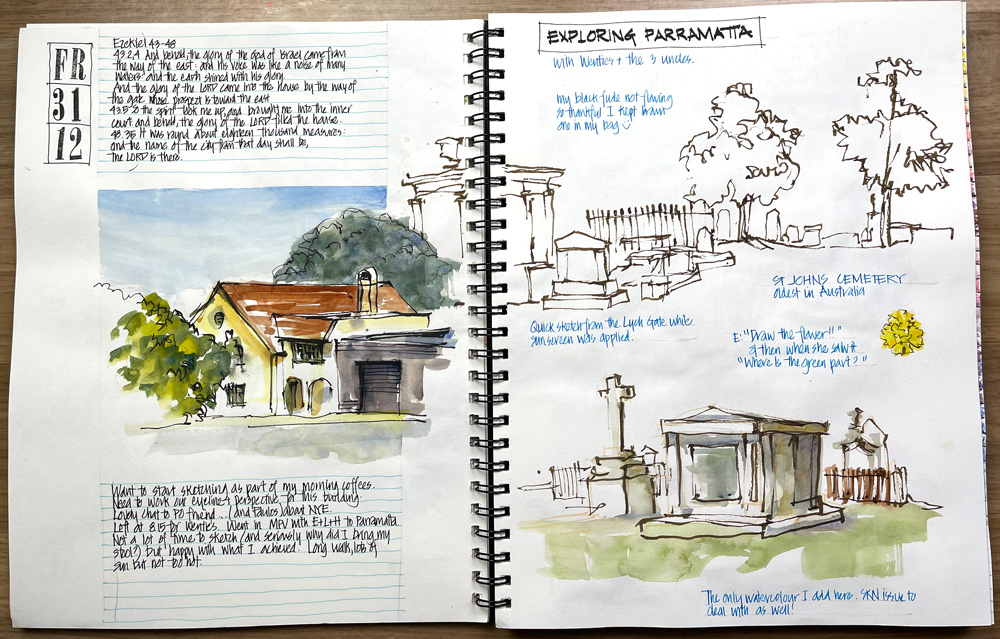 FR
31
12
Ezekiel 43-48
43.2,4 And behold, the glory of the God of Israel came from
the way of the east: and his voice was like a noise of many
waters: and the earth shined with his glory.
And the glory of the LORD came into the house by the way of
the gate whose prospect is toward the east
43.5 So the spirit took me up, and brought me into the inner
court and behold, the glory of the LORD filled the house.
48.35 It was round about eighteen thousand measures:
and the name of the city from that day shall be,
The LORD is there.
Want to start sketching as part of my morning coffees.
Need to work out eyeline & perspective for this building
Lovely chat to PO friend ... (and Paules about NYE.
Left at 8.15 for Wentie's. Went in MPV with E+L+H to Parramatta.
Not a lot of time to sketch (and seriously why did I bring my
stool?) but happy with what I achieved! Long walk, lots of
sun but not too hot.
EXPLORING PARRAMATTA
with Wenties + the 3 uncles.
my black fude not flowing
so thankful I kept brown
one in my bag
ST JOHNS CEMETERY
oldest in Australia
Quick sketch from the Lych Gate while
sunscreen was applied.
E: "Draw the flower!!"
& then when she saw it
"Where is the green part?"
The only watercolour I add here. SKN issue to
deal with as well!